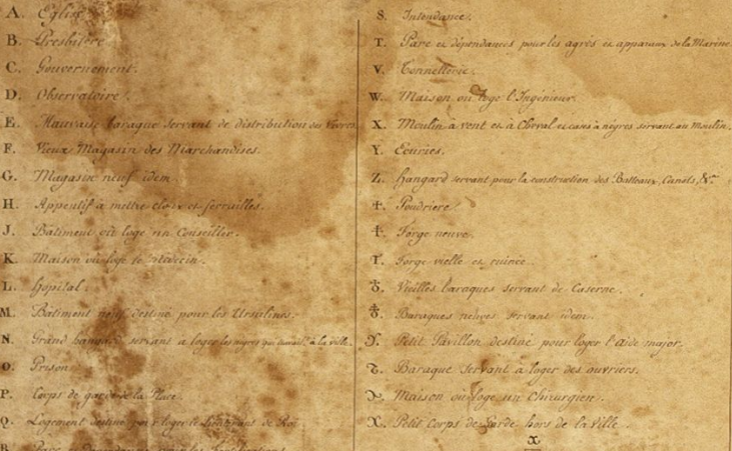 A. Eglise
B. Presbitere
C. Gouvernement.
D. Observatoire.
E. Mauvaise baraque servant de distribution de Vivres
F. Vieux Magasin des Marchandises.
G. Magasin neuf idem.
H. Appentif a mettre cloux et ferrailles.
J. Batiment où loge un Conseiller.
K. Maison où loge le Medecin.
L. hôpital
M. Batiment neuf destiné pour les Ursulines.
N. Grand hangard servant a loger les negres qui a la ville.
O. Prison
P. Corps de garde de la Place.
Q. Logement destiné pour loger le Lieutenant de Roi
R. Parc et
S. Intendance.
T. Parc et dépendances pour les agrès et apparaux de la Marine
V. Tonnellerie.
W. Maison où loge l'Ingenieur.
X. Moulin à vent et à Cheval et cans à nègres servant au moulin.
Y. Ecuries.
Z. hangard servant pour la construction des Batteaux, Canots, &c.
Poudriere.
Forge neuve.
Forge vielle et ruinée
Vieilles baraques servant de Caserne.
Baraques neuves servant idem.
Petit Pavillon destiné pour loger l'aide major.
Baraque servant a loger des ouvriers.
Maison où loge un Chirurgien.
Petit Corps de Garde hors de la Ville.